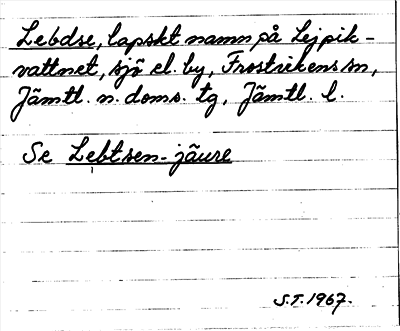 Lebdse, lapskt namn på Lejpik-
vattnet, sjö el. by, Frostvikens sn,
Jämtl. n. doms. tg, Jämtl. l.
Se Lebtsen-jäure
S.T. 1967.